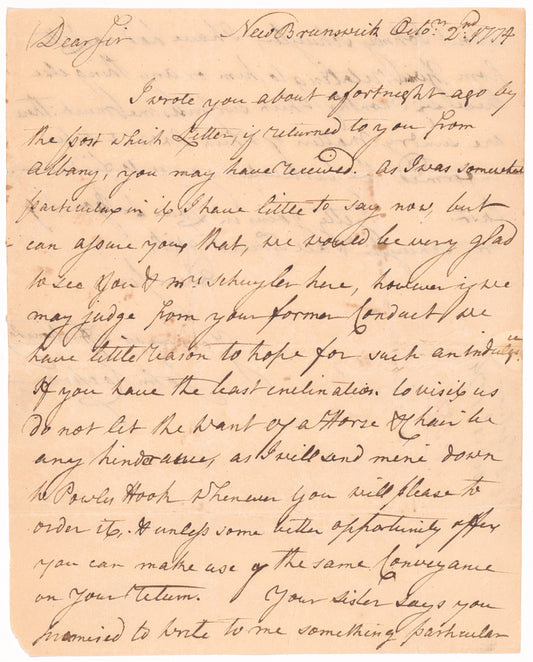 Dear Sir New Brunswick Octo.r 2.nd 1774
I wrote you about a fortnight ago by
the post which Letter, if returned to you from
Albany, you may have received. as I was somewhat
particular in it I have little to say now, but
can assure you that, we would be very glad
to see you & Mrs Schuyler here, however if we
may judge from your former Conduct we
have little reason to hope for such an indulgce.
If you have the least inclination to visit us
do not let the want of a Horse & Chair be
any hinderance, as I will send mine down
to Powles Hook whenever you will please to
order it, & unless some better opportunity offer
you can make use of the same Conveyance
on your return. Your sister says you
promised to write to me something particular